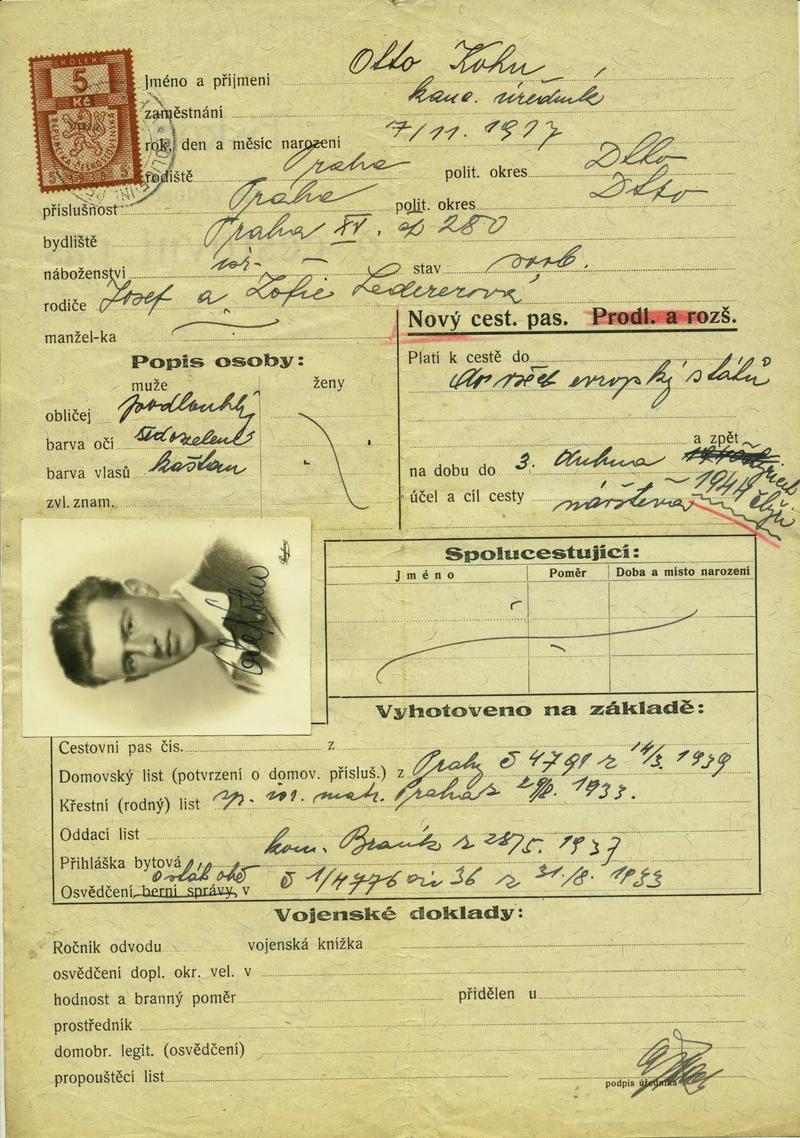 KOLEK
5
Kč
Jméno a příjmení Otto Kohn
zaměstnání kanc. úředník
rok, den a měsíc narození 7/11. 1917
rodiště Praha polit. okres Dtto
příslušnost Praha polit. okres Dtto
bydliště Praha XV. čp 280
náboženství isr. stav svob.
rodiče Josef a Žofie Ledererová
manžel-ka
Nový cest. pas. Prodl. a rozš.
Popis osoby:
muže ženy
obličej podlouhlý
barva očí šedozelené
barva vlasů kaštan
zvl. znam.
Platí k cestě do
do všech evropský států
a zpět
na dobu do 3. dubna 1944
účel a cíl cesty návštěva
Otto Kohn
Spolucestující:
Jméno Poměr Doba a místo narození
Vyhotoveno na základě:
Cestovní pas čís. z
Domovský list (potvrzení o domov. přísluš.) z Prahy č 4791 z 14/3. 1939
Křestní (rodný) list isr. matr. Praha z 1933.
Oddací list
Přihláška bytová kom. Braník z 28/5. 1937
Osvědčení berní správy v č 1/4776 36 z 31./8. 1933
Vojenské doklady:
Ročník odvodu vojenská knížka
osvědčení dopl. okr. vel. v
hodnost a branný poměr přidělen u
prostředník
domobr. legit. (osvědčení)
propouštěcí list
podpis úředníka